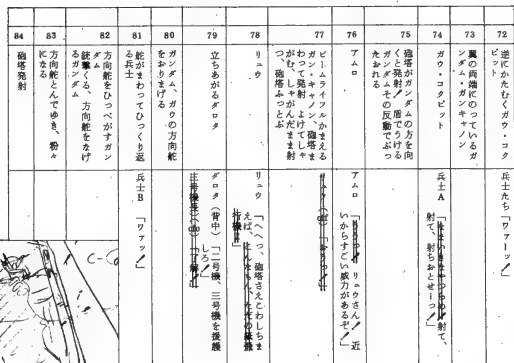 72
逆にかたむくガウ・コク
ピット
兵士たち「ワァーッ！」
73
翼の両端にのっているガ
ンダム・ガンキャノン
74
ガウ・コクピット
兵士A
射て、
射て、射ちおとせーっ！」
75
砲塔がガンダムの方を向
くと発射！　盾でうける
ガンダムその反動でぶっ
たおれる
76
アムロ
アムロ
リュウさん！　近
いからすごい威力があるぞ！」
77
ビームライフルかまえる
ガン・キャノン、砲塔ま
わって発射　よけてしゃ
がむ、しゃがんだまま射
つ、砲塔ふっとぶ
78
リュウ
リュウ「へへっ、砲塔さえこわしちま
えば、
79
立ちあがるダロタ
ダロタ（背中）「二号機、三号機を援護
しろ！」
80
ガンダム、ガウの方向舵
をおりまげる
81
舵がまわってひっくり返
る兵士
兵士B　「ワァッ！」
82
方向舵をひっぺがすガン
ダム
銃撃くる、方向舵をなげ
るガンダム
83
方向舵とんでゆき、粉々
になる
84
砲塔発射